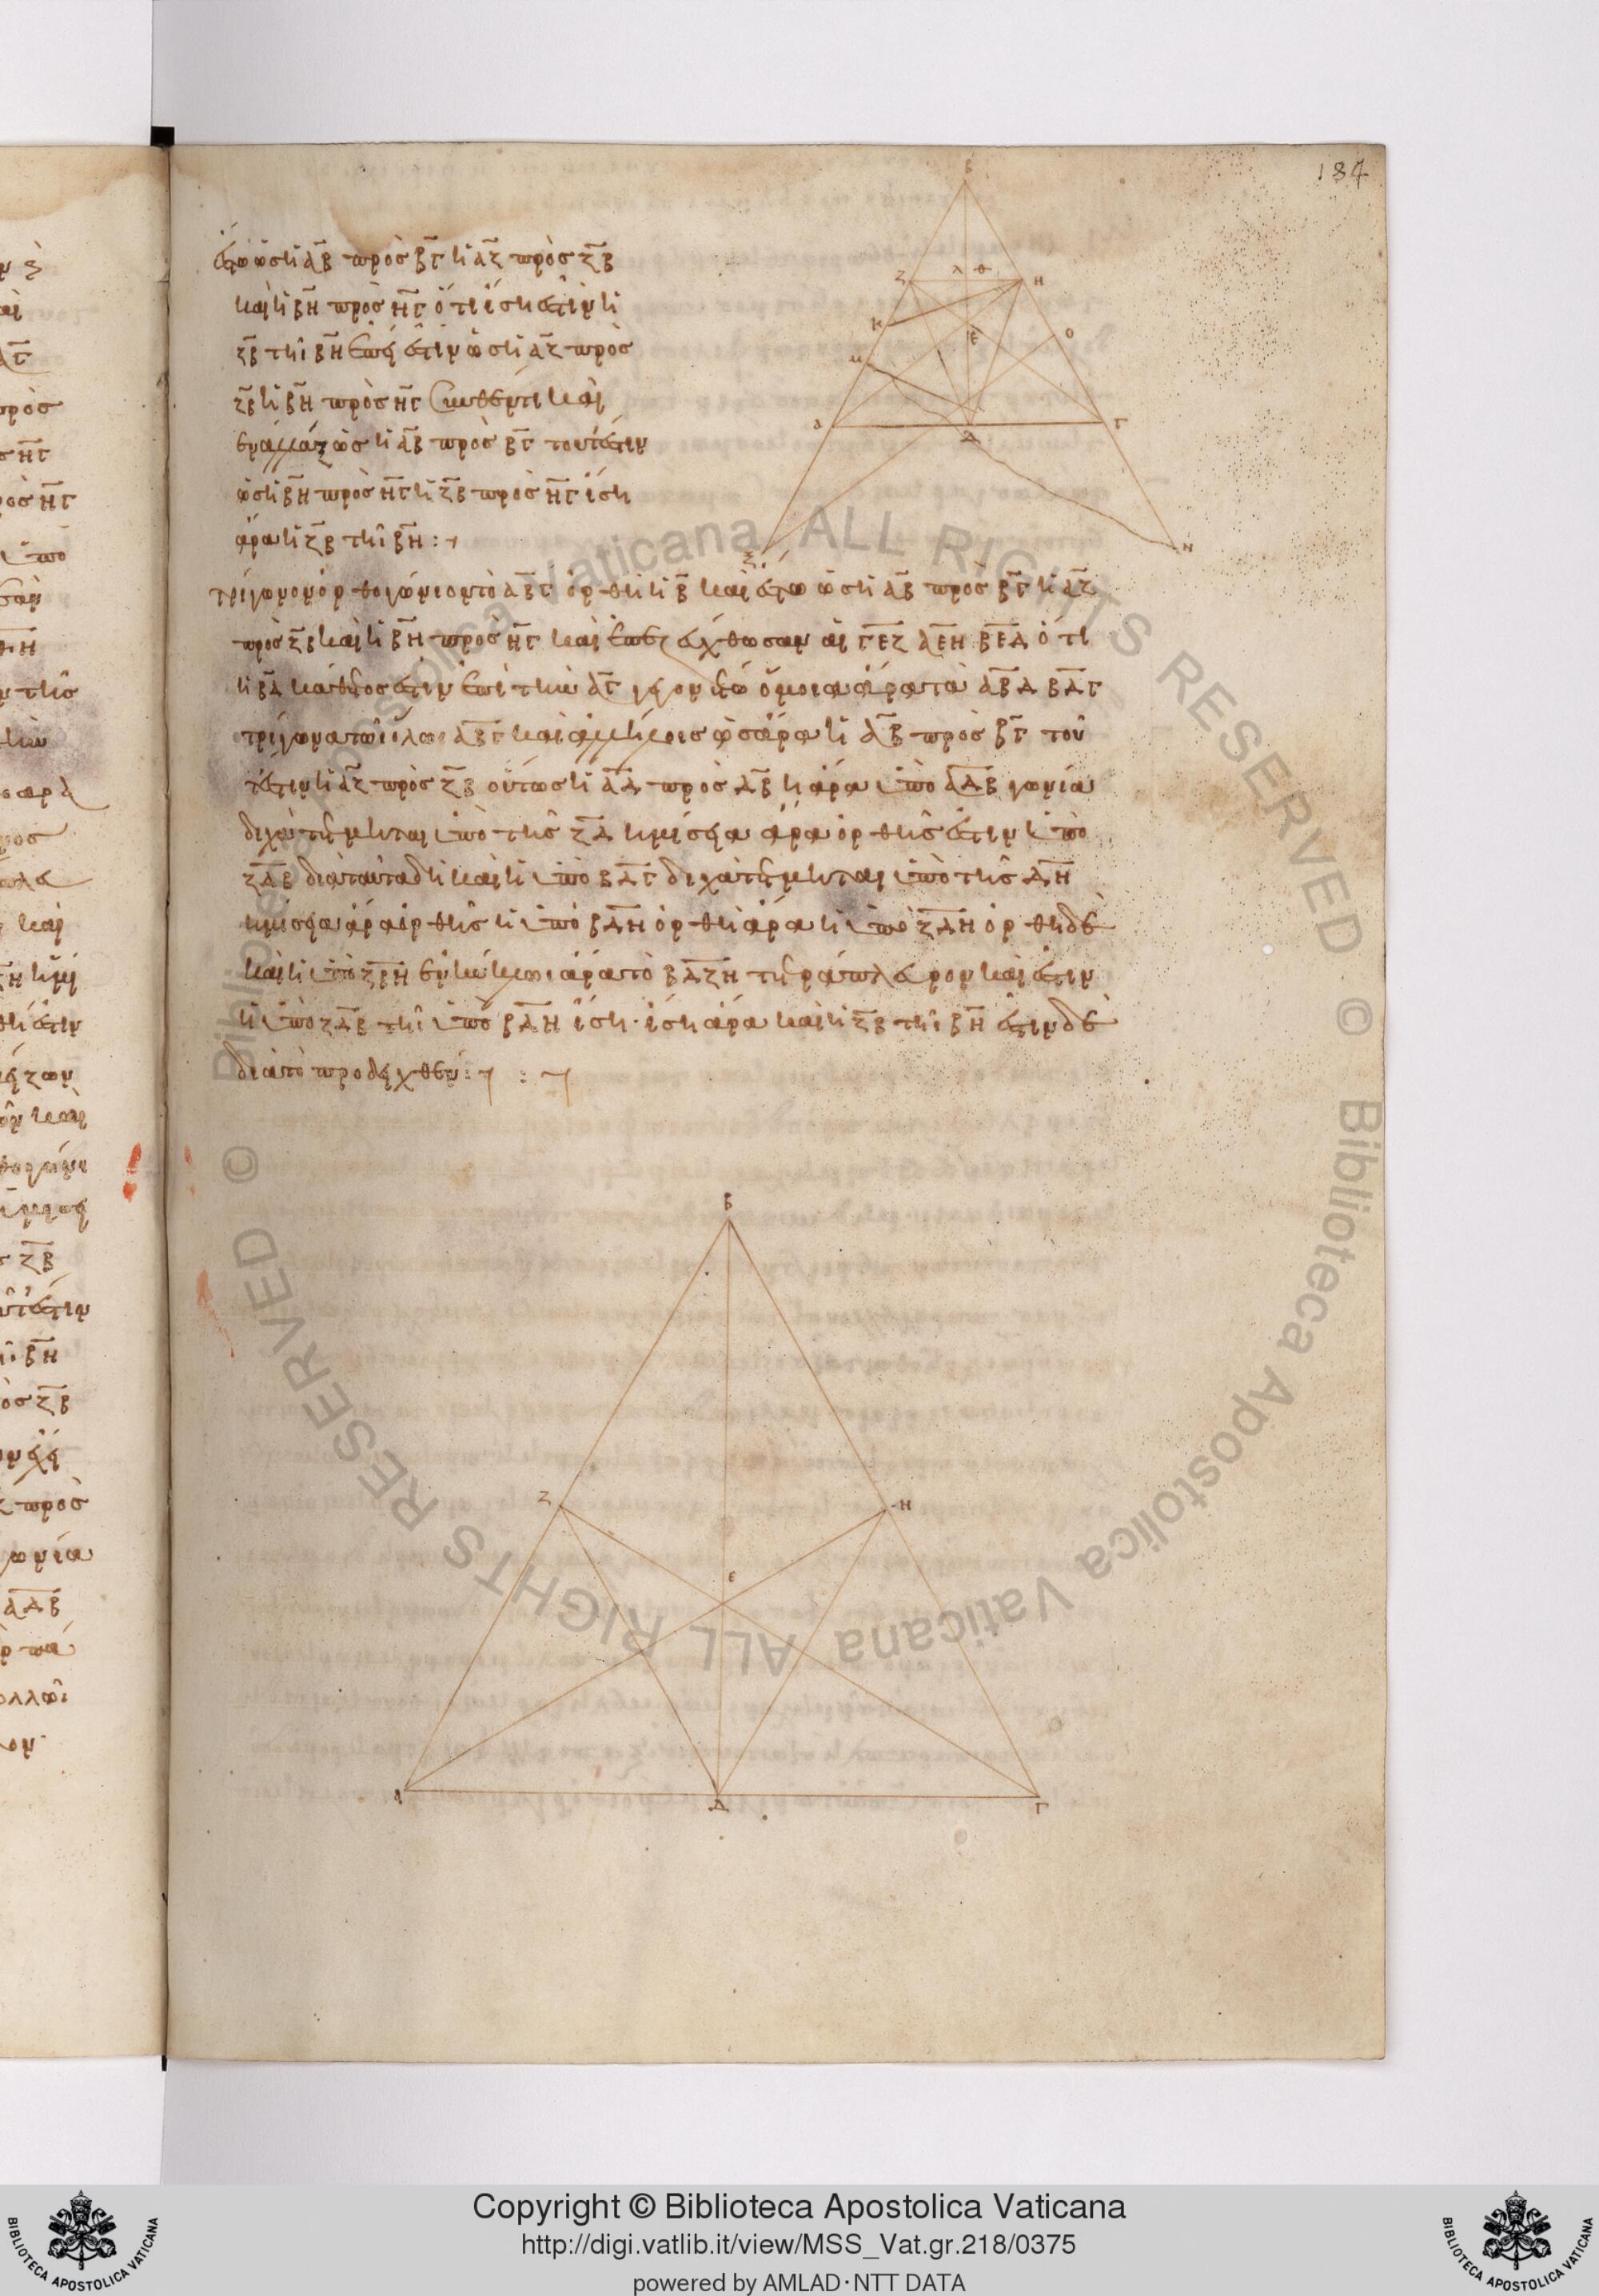 184
ἔστω ὡς ἡ ΑΒ πρὸς ΒΓ ἡ ΑΖ πρὸς ΖΒ
καὶ ἡ ΒΗ πρὸς ΗΓ ὅτι ἴση ἐστὶν ἡ
ΖΒ τῆι ΒΗ ἐπεί ἐστιν ὡς ἡ ΑΖ πρὸς
ΖΒ ἡ ΒΗ πρὸς ΗΓ συνθέντι καὶ
ἐναλλάξ ὡς ἡ ΑΒ πρὸς ΒΓ τουτέστιν
ὡς ἡ ΒΗ πρὸς ΗΓ ἡ ΖΒ πρὸς ΗΓ ἴση
ἄρα ἡ ΖΒ τῆι ΒΗ :
τρίγωνον ὀρθογώνιον τὸ ΑΒΓ ὀρθὴ ἡ Β καὶ ἔστω ὡς ἡ ΑΒ πρὸς ΒΓ ἡ ΑΖ
πρὸς ΖΒ καὶ ἡ ΒΗ πρὸς ΗΓ καὶ ἐπεζεύχθωσαν αἱ ΓΕΖ ΑΕΗ ΒΕΔ ὅτι
ἡ ΒΔ κάθετος ἐστὶν ἐπὶ τὴν ΑΓ γεγονέτω ὅμοια ἄρα τὰ ΑΒΔ ΒΔΓ
τρίγωνα τῶι ὅλωι ΑΒΓ καὶ ἀλλήλοις ὡς ἄρα ἡ ΑΒ πρὸς ΒΓ του
τέστιν ἡ ΑΖ πρὸς ΖΒ οὕτως ἡ ΑΔ πρὸς ΔΒ ἡ ἄρα ὑπὸ ΑΔΒ γωνία
δίχα τέτμηται ὑπὸ τῆς ΖΔ ἡμίσεια ἄρα ὀρθῆς ἐστὶν ἡ ὑπὸ
ΖΔΒ διὰ ταὐτὰ δὴ καὶ ἡ ὑπὸ ΒΔΓ δίχα τέτμηται ὑπὸ τῆς ΔΗ
ἡμίσεια ἄρα ὀρθῆς ἡ ὑπὸ ΒΔΗ ὀρθὴ ἄρα ἡ ὑπὸ ΖΔΗ ὀρθὴ δὲ
καὶ ἡ ὑπὸ ΖΒΗ ἐν κύκλωι ἄρα τὸ ΒΔΖΗ τετράπλευρον καὶ ἐστιν
ἡ ὑπὸ ΖΔΒ τῆι ὑπὸ ΒΔΗ ἴση · ἴση ἄρα καὶ ἡ ΖΒ τῆι ΒΗ ἔστιν δὲ
διὰ τὸ προδειχθέν : :
Β
Ζ Λ Θ Η
Κ
Ε Ο
Μ
Α Δ Γ
Ξ Ν
Β
Ζ Η
Ε
Α Δ Γ
Copyright © Biblioteca Apostolica Vaticana
http://digi.vatlib.it/view/MSS_Vat.gr.218/0375
powered by AMLAD·NTT DATA
BIBLIOTECA APOSTOLICA VATICANA
BIBLIOTECA APOSTOLICA VATICANA
© Biblioteca Apostolica Vaticana ALL RIGHTS RESERVED © Biblioteca Apostolica Vaticana ALL RIGHTS RESERVED